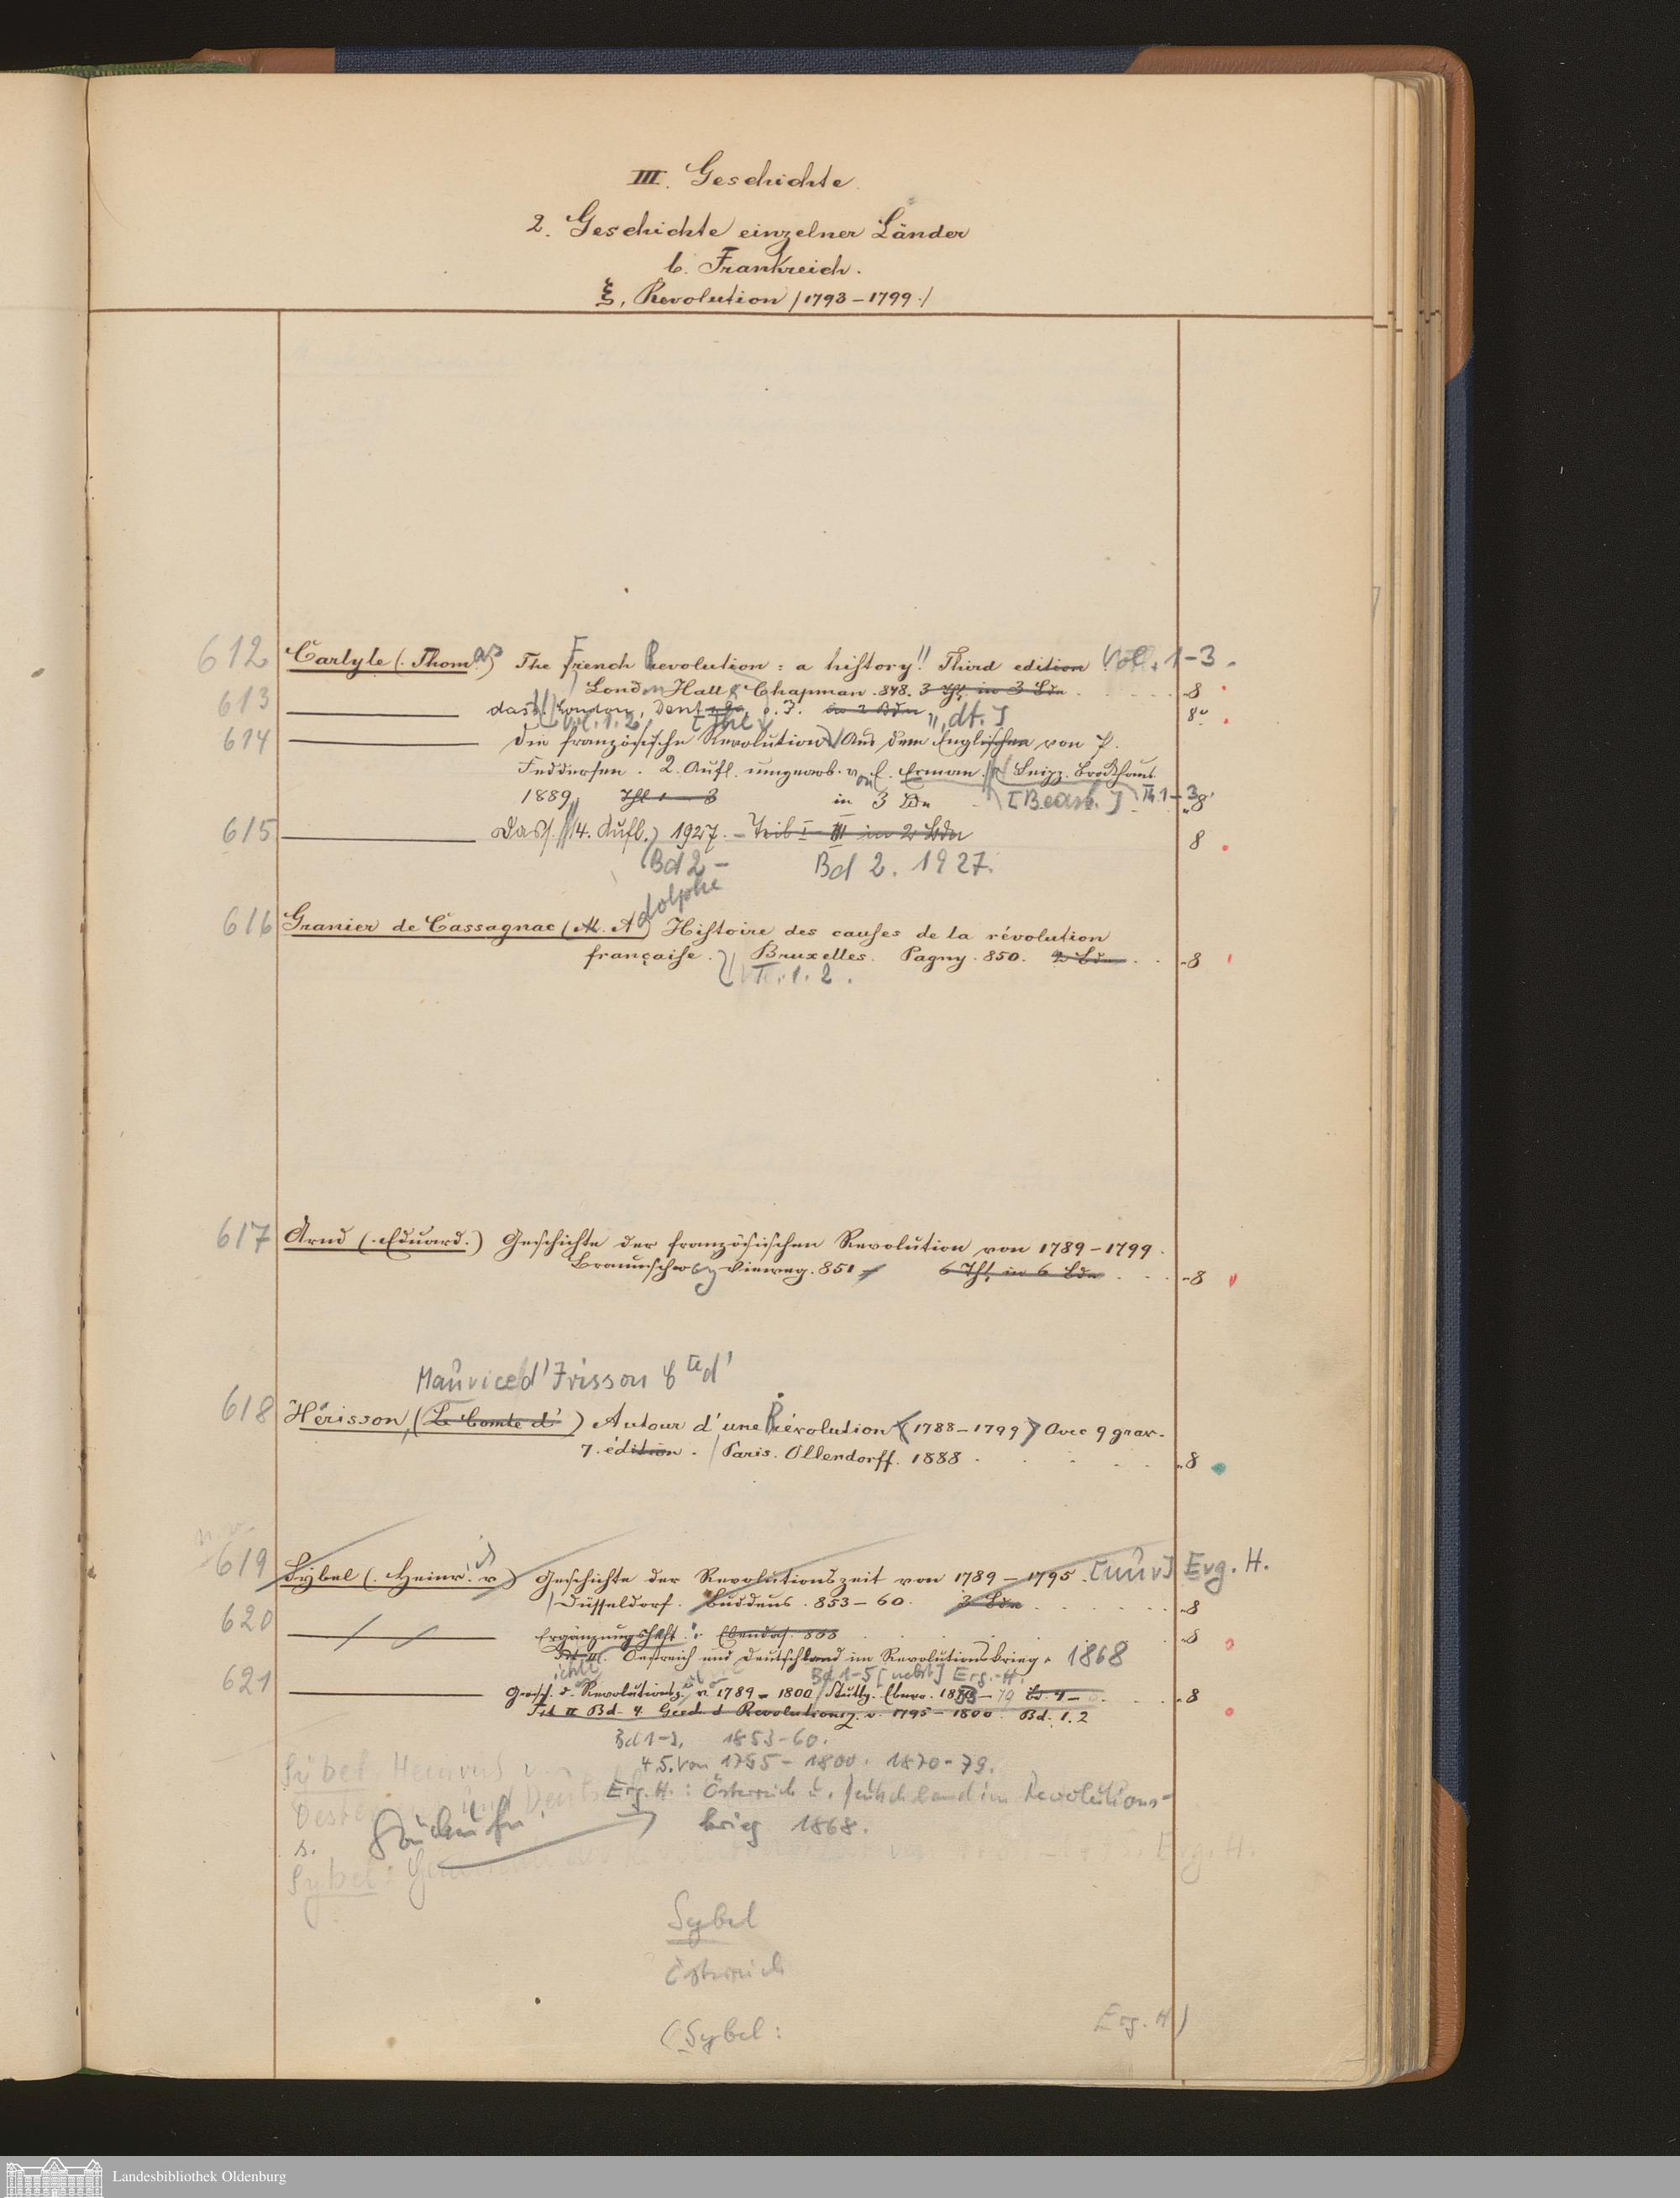 III. Geschichte.
2. Geschichte einzelner Länder
b. Frankreich.
ξ, Revolution /1793-1799./
612 Carlyle (. Thomas) The French Revolution: a history!! Third edition Voll. 1-3.
London Hall & Chapman. 848. 3 Thl. in 3 Bdn 8
613 dass. London, Dent o. J. in 2 Bdn 8°
Vol. 1. 2, dt. ]
614 Die französische Revolution Aus dem Englischen von P.
Feddersen. 2. Aufl. umgearb. von E. Erman. Leipz. Brockhaus
1889. Thl 1-3 in 3 Bdn [Bearb.] Th. 1-3 8
615 Dass. 4. Aufl. 1927. - Teil I-III in 2 Bdn 8
(Bd 2 - Bd 2. 1927.
dolphe
616 Granier de Cassagnac (M. A) Histoire des causes de la révolution
française. Bruxelles. Pagny. 850. 2 Bdn 8
T. 1. 2.
617 Arnd (. Eduard.) Geschichte der französischen Revolution von 1789-1799.
Braunschwg Vieweg. 851 6 Thl. in 6 Bdn 8
Maurice d'Irisson Cte d'
618 Hérisson, (Le Comte d') Autour d'une Révolution (1788-1799) Avec 9 grav.
7. édition. Paris. Ollendorff. 1888 8
619 Sybel (. Heinr. v) Geschichte der Revolutionszeit von 1789-1795. [nur] Erg. H.
Düsseldorf. Buddeus. 853-60. 3 Bdn 8
620 Ergänzungsheft: Ebendas. 868 8
Oestreich und Deutschland im Revolutionskrieg. 1868
Bd 1-5 [nebst] Erg.-H.
621 Gesch. d. Revolutionsz. v. 1789-1800 Stuttg. Ebner. 18 -79 Bd. 4- 8
Bd. 4. Gesch. d Revolutionsz. v. 1795-1800. Bd. 1. 2
Bd 1-3, 1853-60.
4.5. von 1795-1800. 1870-79.
Sybel, Heinrich v
Erg. H.: Österreich u. Deutschland im Revolutions-
krieg 1868.
s.
Sybel: Erg. H.
Sybel
Österreich
(Sybel: Erg. H)
Landesbibliothek Oldenburg